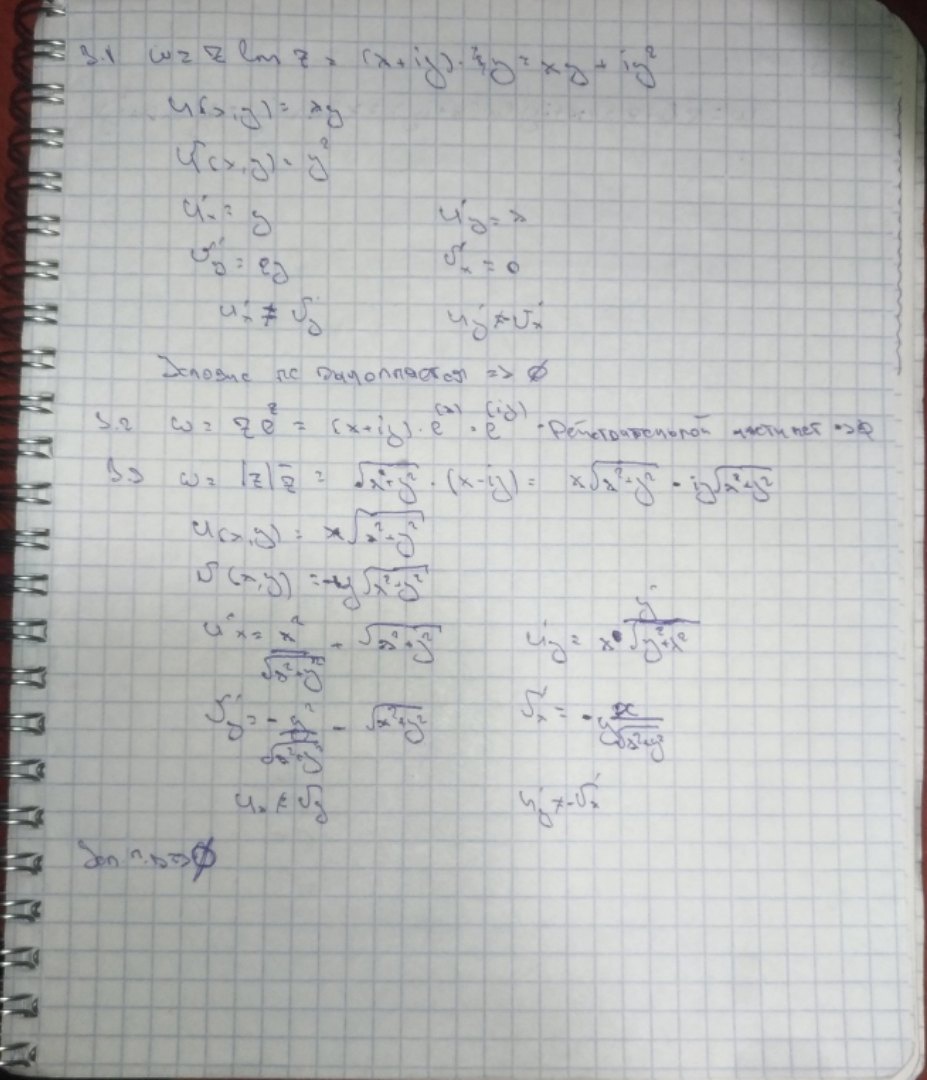 3.1 w = z Im z = (x+iy)·y = xy + iy²
u(x,y) = xy
v(x,y) = y²
u'x = y u'y = x
v'y = 2y v'x = 0
u'x ≠ v'y u'y ≠ v'x
Условие не выполняется => ∅
3.2 w = z e^z = (x+iy)·e^(x)·e^(iy) · Действительной части нет => ∅
3.3 w = |z| z̄ = √(x²+y²) · (x-iy) = x√(x²+y²) - iy√(x²+y²)
u(x,y) = x√(x²+y²)
v(x,y) = -y√(x²+y²)
u'x = x²/√(x²+y²) + √(x²+y²) u'y = x · y/√(y²+x²)
v'y = - y²/√(x²+y²) - √(x²+y²) v'x = - y x/√(x²+y²)
u'x ≠ v'y u'y ≠ -v'x
=> ∅